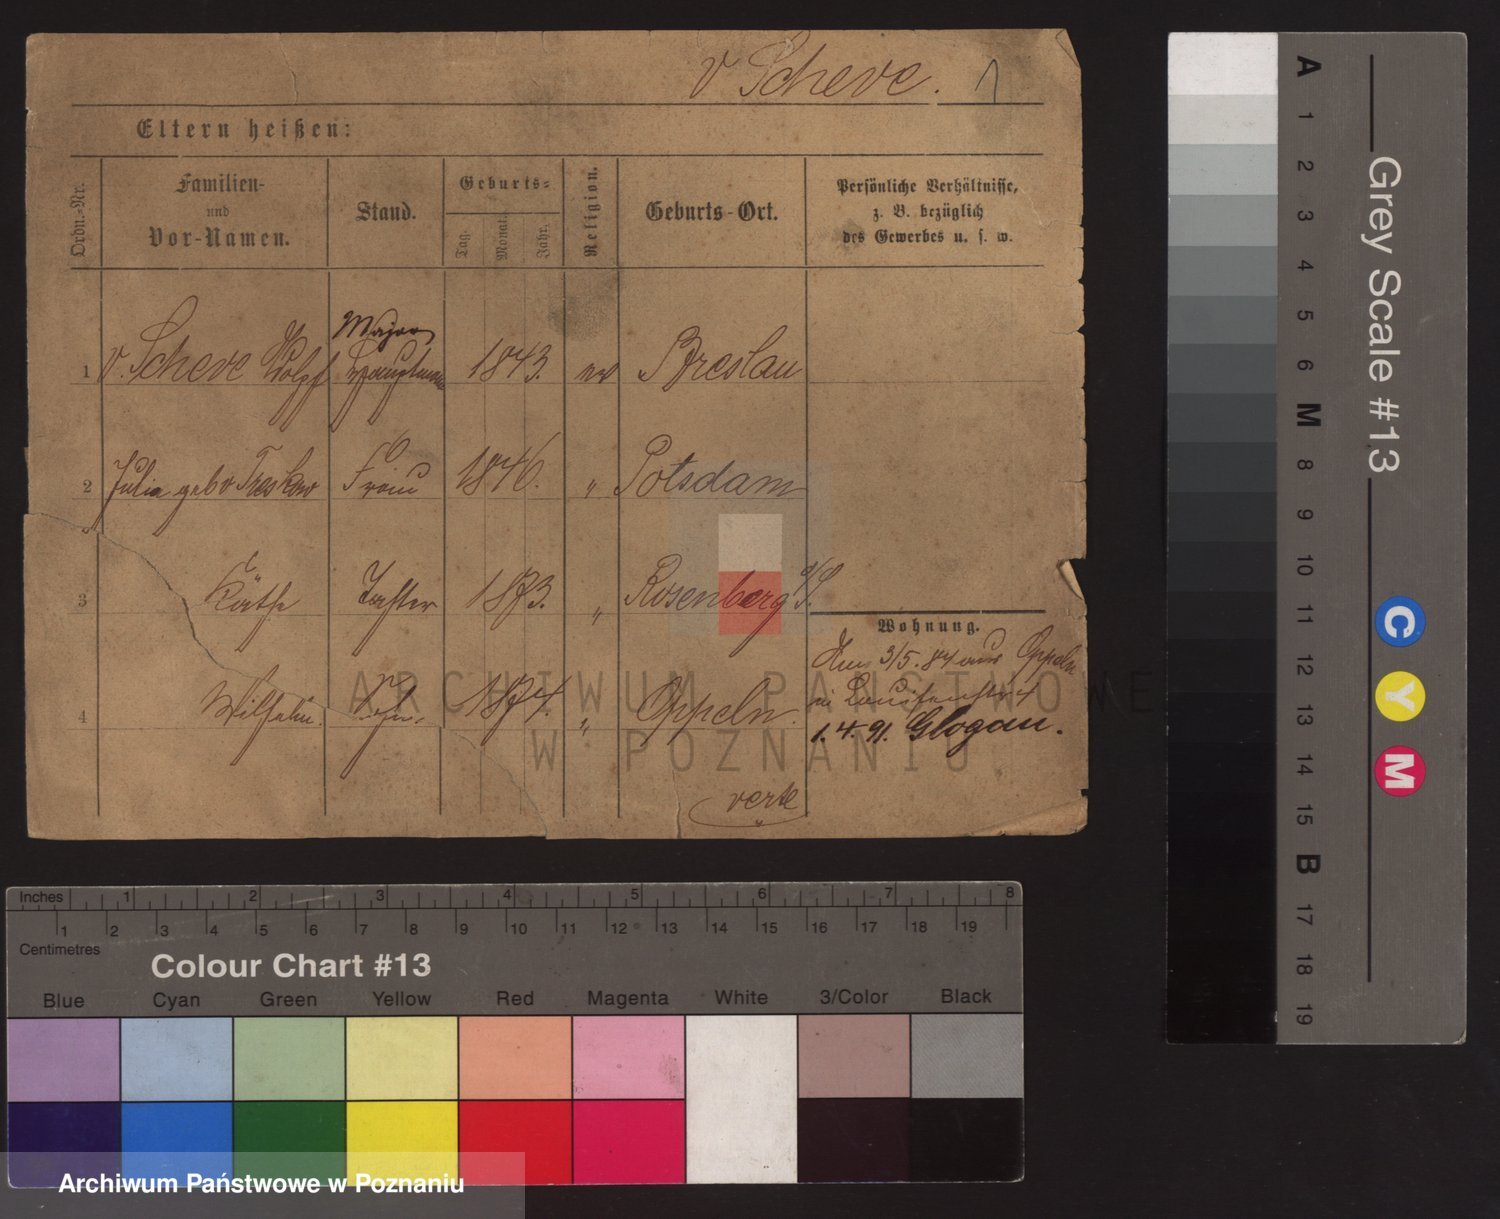 v Scheve. 1
Eltern heißen:
Ordn.-Nr.
Familien-
und
Vor-Namen.
Stand.
Geburts-
Tag.
Monat.
Jahr.
Religion.
Geburts-Ort.
Persönliche Verhältnisse,
z. B. bezüglich
des Gewerbes u. s. w.
Major
1 v. Scheve Wolff Hauptmann 1843. ev Breslau
2 Julia geb v Treskow Frau 1846. " Potsdam
3 Käthe Tochter 1873. " Rosenberg O/S.
4 Wilhelm. Sohn. 1874. " Oppeln.
Wohnung.
3/5. 84 aus Oppeln
in Louisenstr 4
1.4.91. Glogau.
verte
ARCHIWUM PAŃSTWOWE
W POZNANIU
A 1 2 3 4 5 6 M 8 9 10 11 12 13 14 15 B 17 18 19
Grey Scale #13
C Y M
Inches 1 2 3 4 5 6 7 8
1 2 3 4 5 6 7 8 9 10 11 12 13 14 15 16 17 18 19
Centimetres
Colour Chart #13
Blue Cyan Green Yellow Red Magenta White 3/Color Black
Archiwum Państwowe w Poznaniu